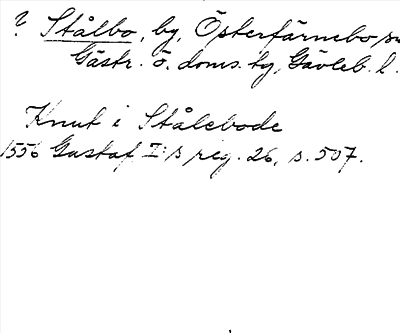 ? Stålbo, by, Österfärnebo sn
Gästr. ö. doms. tg, Gävleb. l.
Knut i Stålebode
1556 Gustaf I:s reg. 26, s. 507.